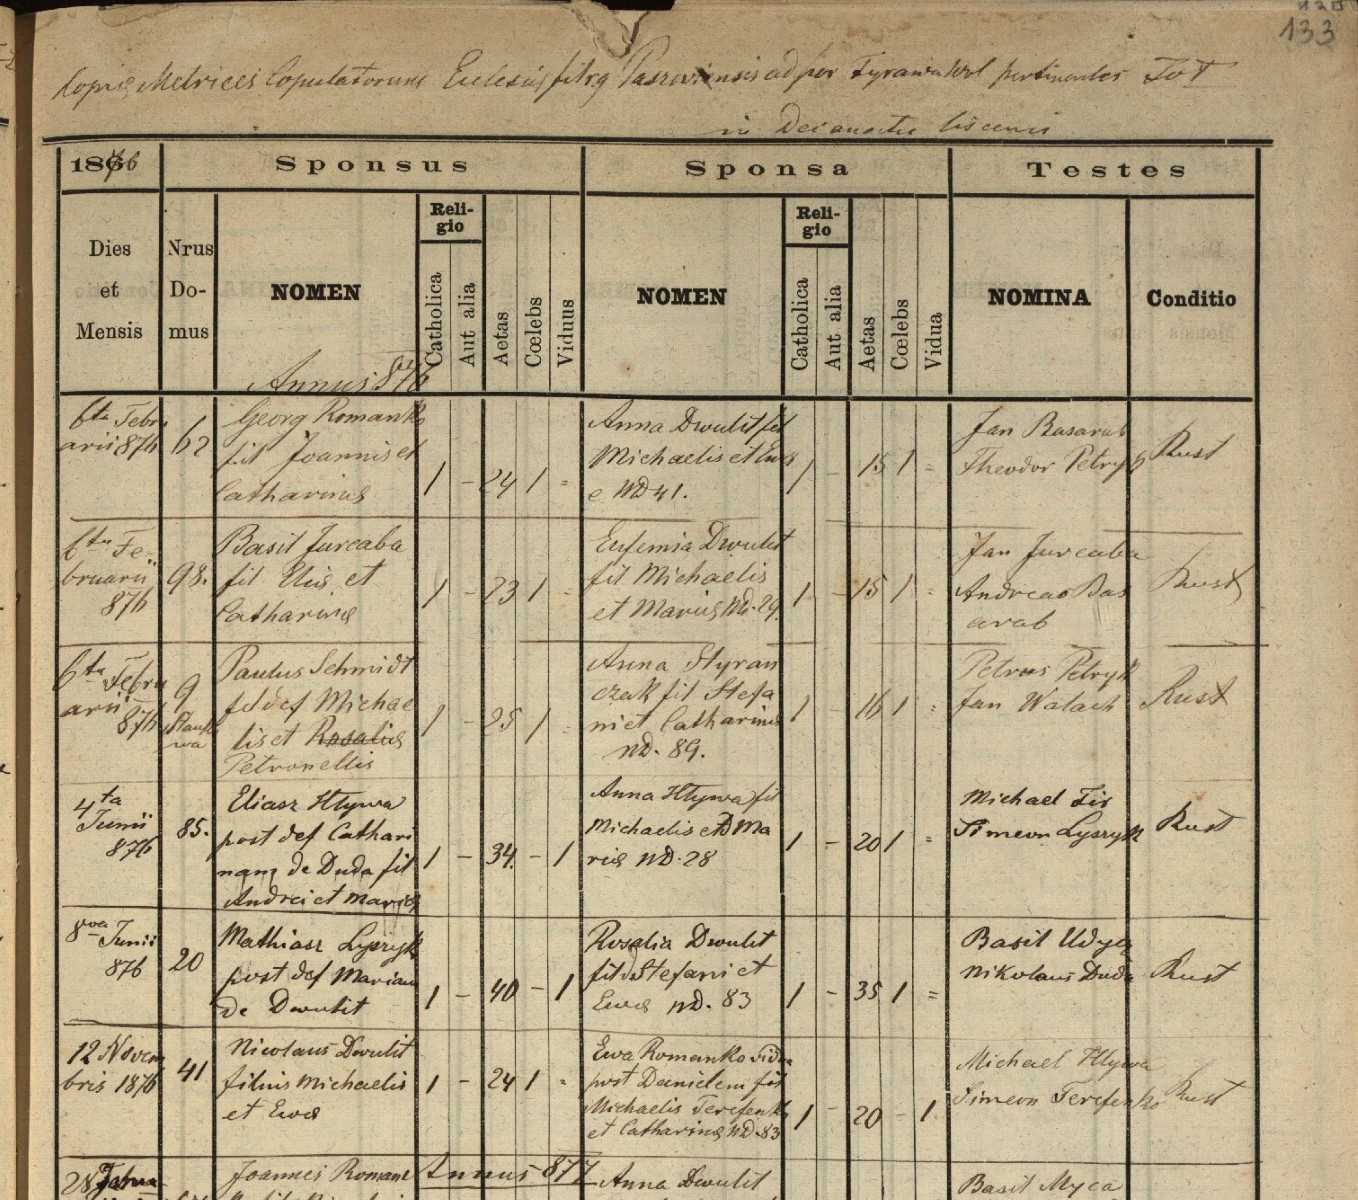 133
Copia Metrices Copulatorum Ecclesiæ filræ ad par Tyrawa Wol pertinentes
in Decanatu
1876
Sponsus
Sponsa
Testes
Dies et Mensis
Nrus Do-mus
NOMEN
Reli-gio
Catholica
Aut alia
Aetas
Cœlebs
Viduus
NOMEN
Reli-gio
Catholica
Aut alia
Aetas
Cœlebs
Vidua
NOMINA
Conditio
Annus 876
6ta Febru
arii 876
62
Georg Romanko
fil Joannis et
Catharinæ
1 - 24 1 =
Anna Dwulit fil
Michaelis et Ewa
e ND 41.
1 - 15 1 =
Jan Basarab
Theodor Petryk
Rust
6ta Fe-
bruarii
876
98.
Basil Jurcaba
fil Eliæ et
Catharinæ
1 - 23 1 -
Eufemia Dwulit
fil Michaelis
et Mariæ Nd. 29.
1 - 15 1 =
Jan Jurcaba
Andreas Bas
arab
Rust
6ta Febru
arii
876
9
Paulus Schmidt
fil def Michae
lis et Rosaliæ
Petronellis
1 - 25 1 -
Anna Styran
czak fil Stefa
ni et Catharinæ
ND. 89.
1 - 16 1 =
Petrus Petryk
Jan Walach
Rust
4ta
Junii
876
85.
Eliasz Hlywa
post def Cathari
nam de Duda fil
Andrei et Mariæ
1 - 34 - 1
Anna Hlywa fil
Michaelis et Ma
riæ ND. 28
1 - 20 1 =
Michael Fis
Simeon Lyszyk
Rust
8va Junii
876
20
Mathiasz Lyszyk
post def Mariam
de Dwulit
1 - 40 - 1
Rosalia Dwulit
fil Stefani et
Ewæ ND. 83
1 - 35 1 =
Basil Udycz
Nikolaus Duda
Rust
12 Novem
bris 1876
41
Nicolaus Dwulit
filius Michaelis
et Ewæ
1 - 24 1 =
Ewa Romanko vidua
post Danielem fil
Michaelis Terefenko
et Catharinæ ND. 83
1 - 20 - 1
Michael Hlywa
Simeon Terefenko
Rust
Annus 877
28
Joannes Roman
Anna Dwulit
Basil Myca